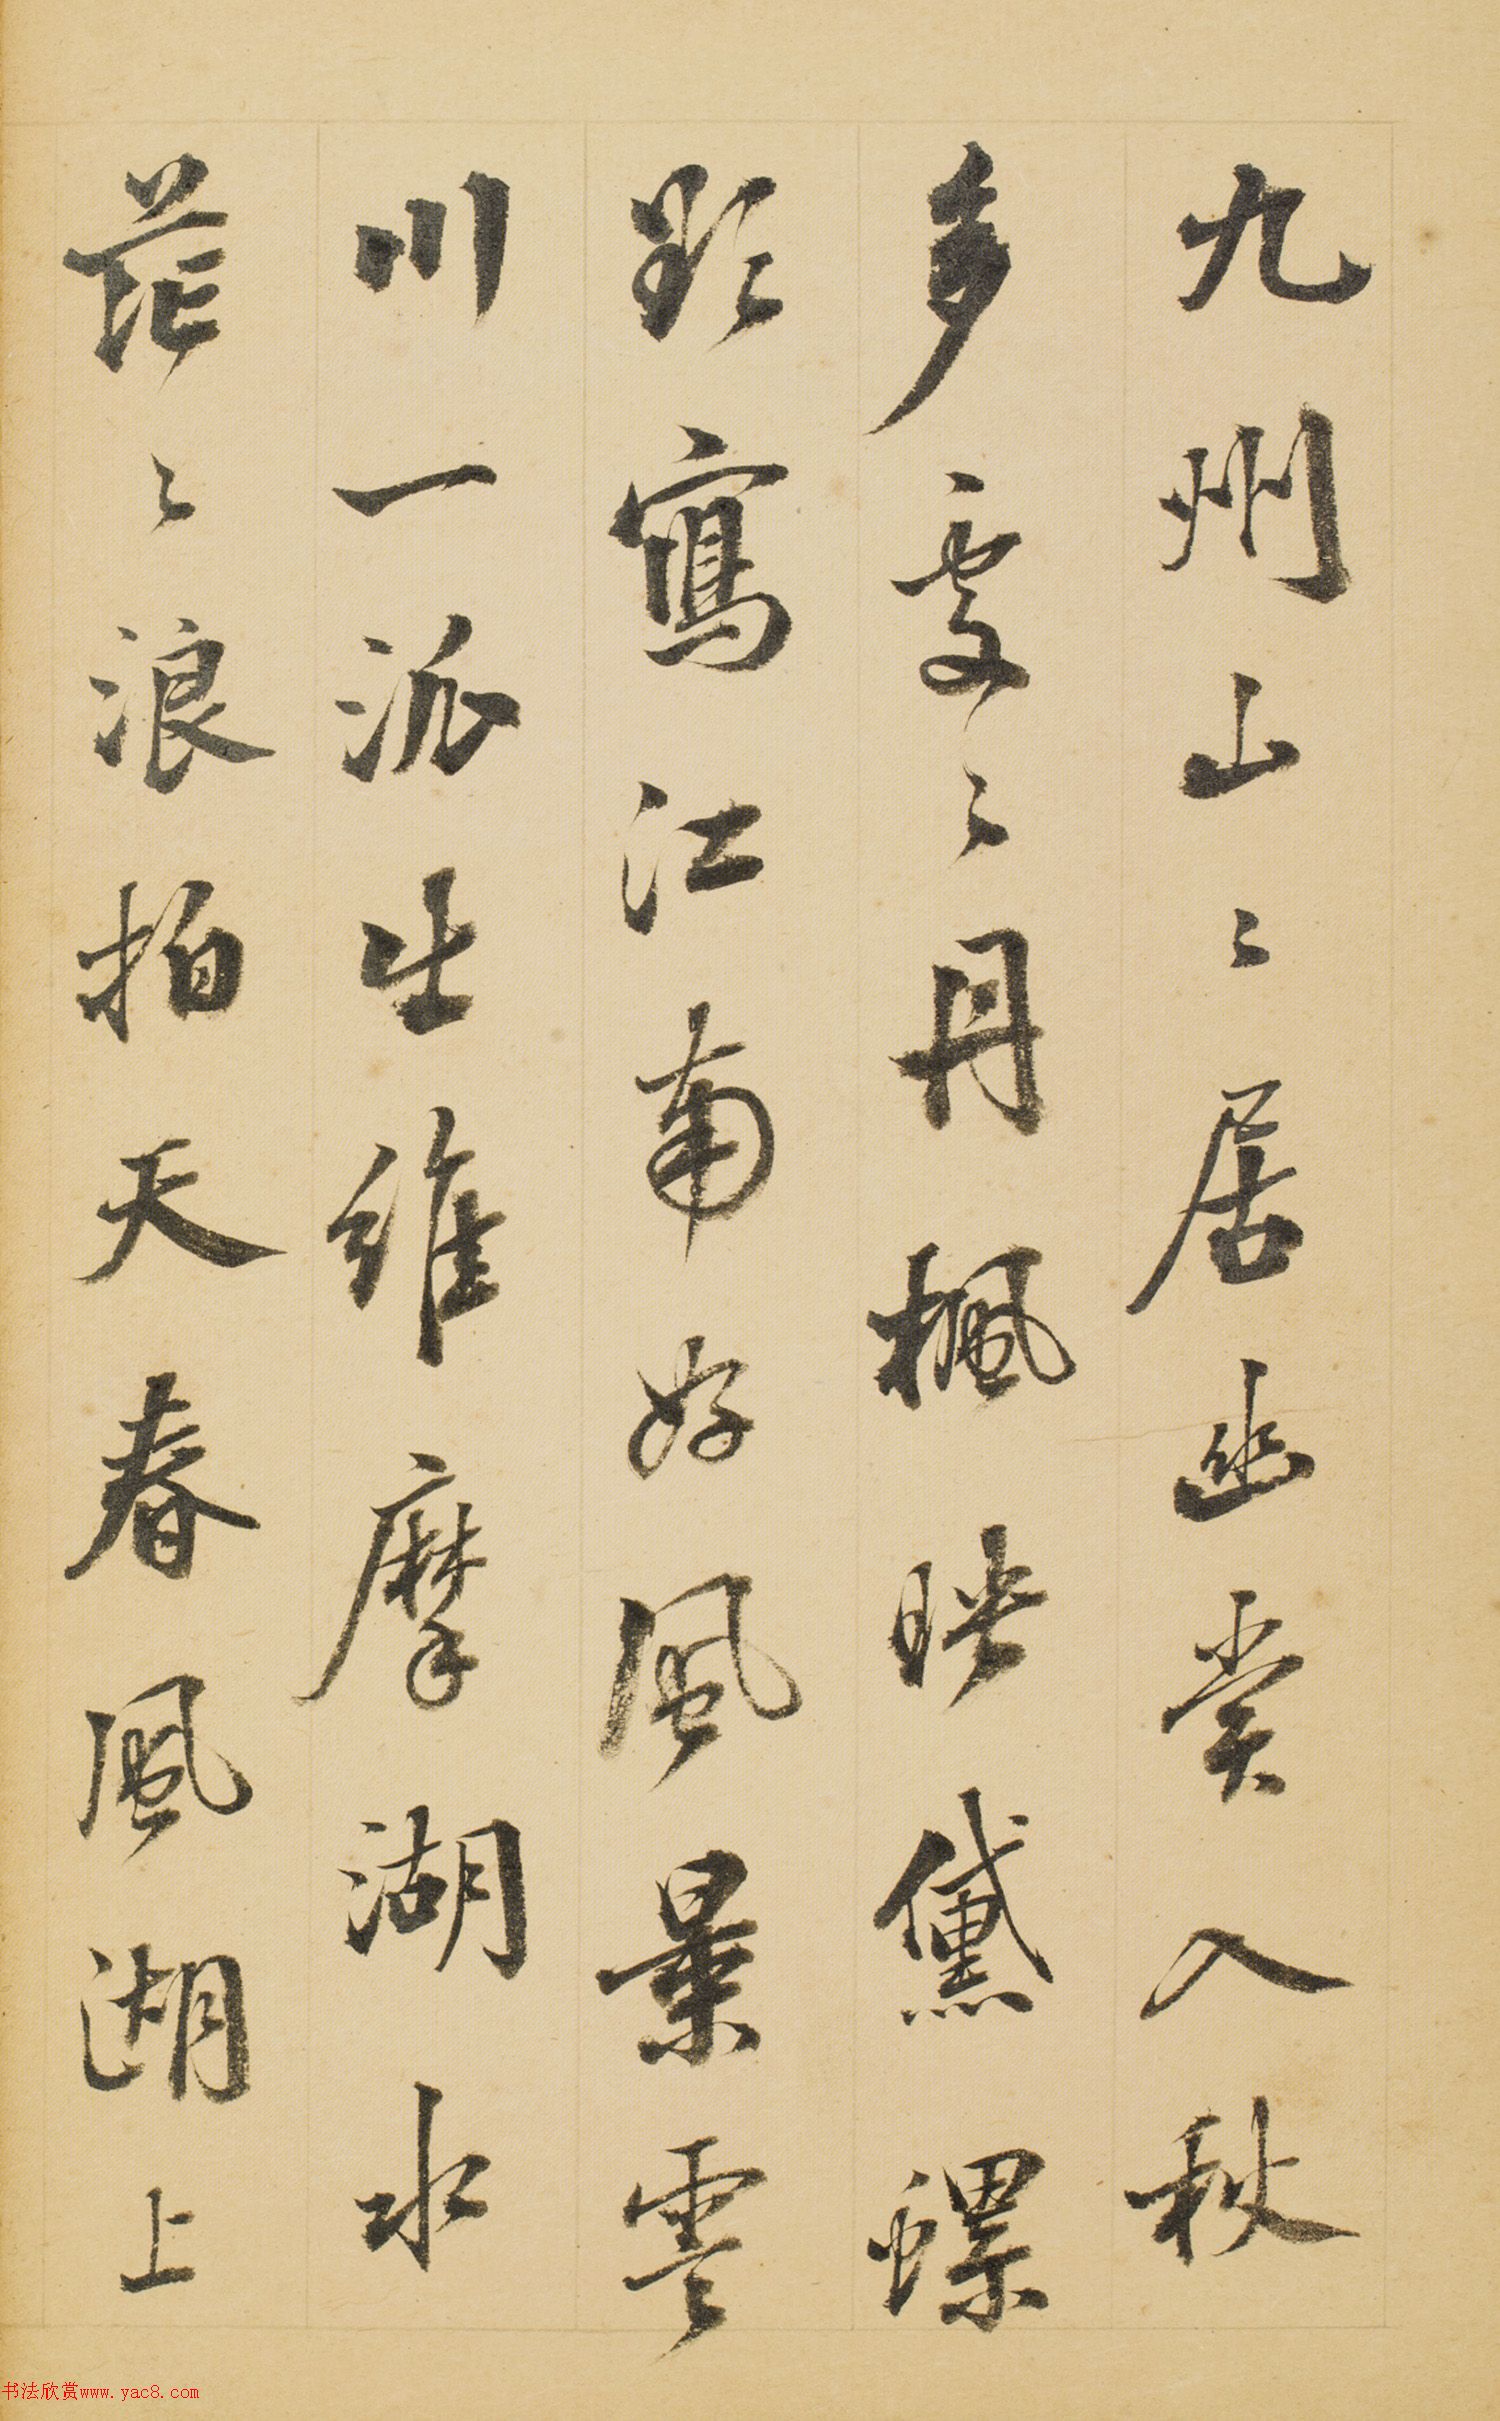 九州山〻居幽賞入秋
多處〻丹楓映黛螺
欲寫江南好風景雲
川一派出維摩湖水
茫〻浪拍天春風湖上
书法欣赏www.yac8.com